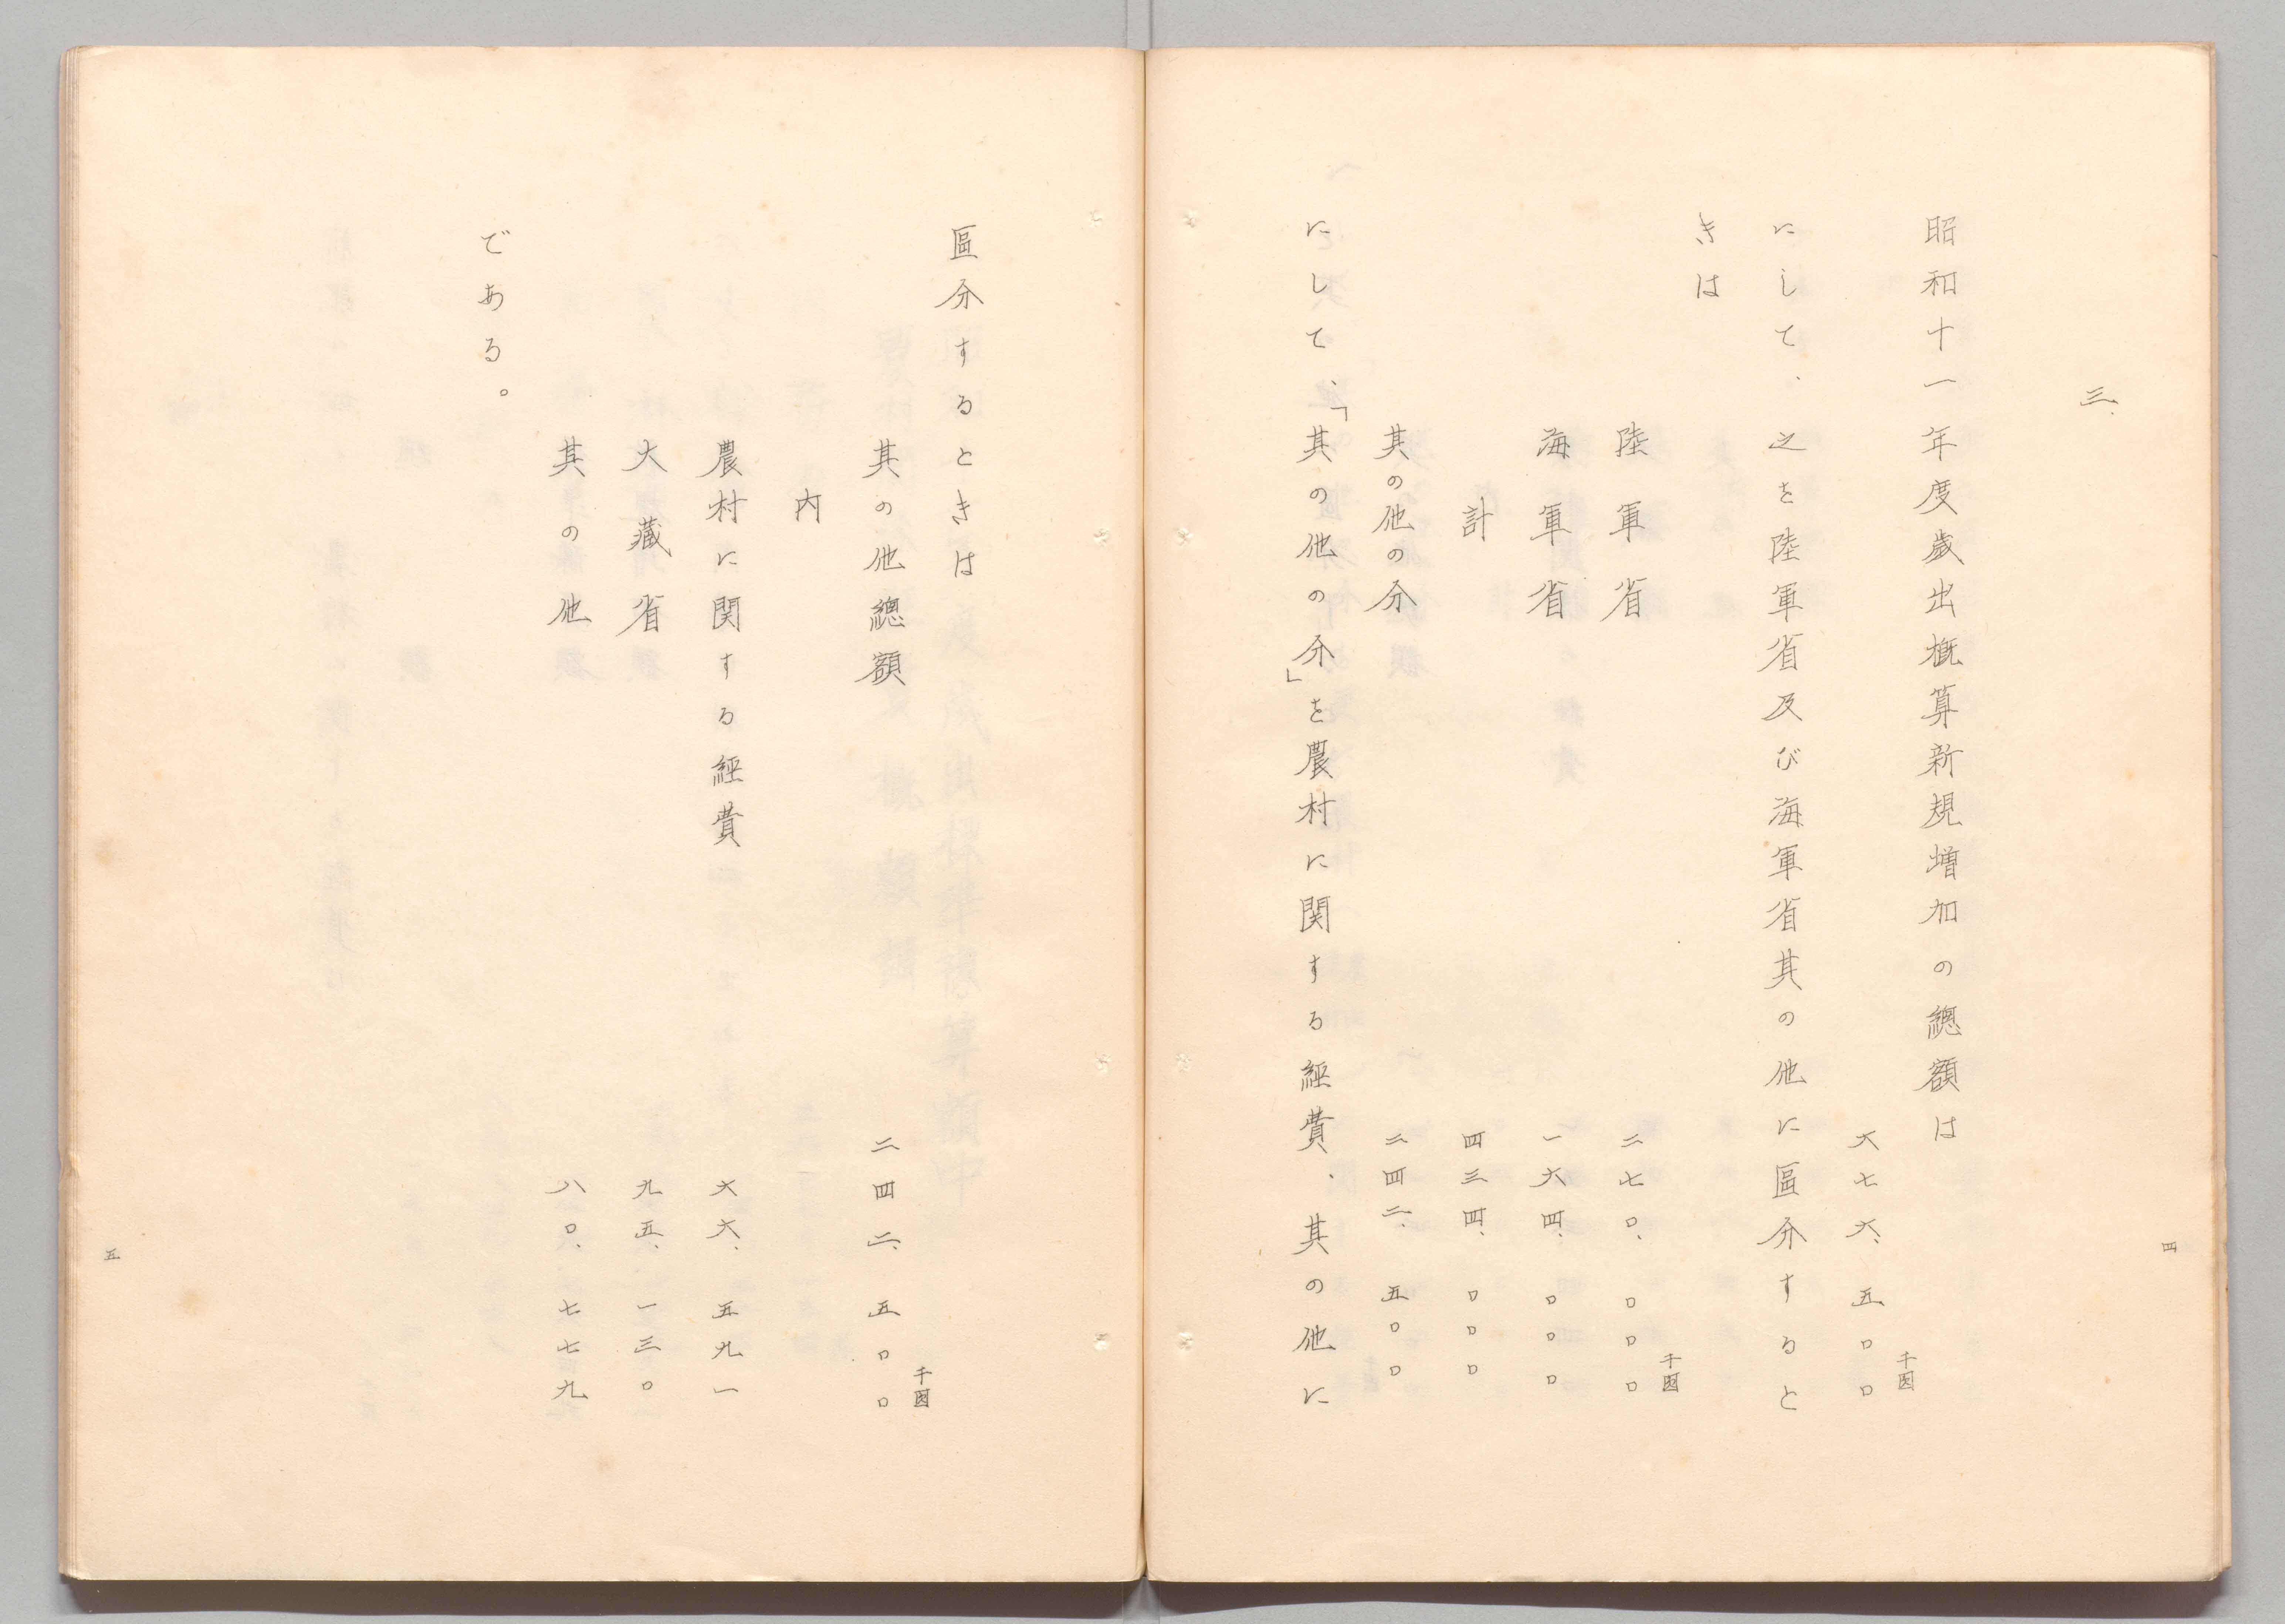 三、
昭和十一年度歲出概算新規増加の總額は
千圓
六七六、五〇〇
にして、之を陸軍省及び海軍省其の他に區分すると
きは
千圓
陸軍省 二七〇、〇〇〇
海軍省 一六四、〇〇〇
計 四三四、〇〇〇
其の他の分 二四二、五〇〇
にして、「其の他の分」を農村に関する経費、其の他に
四
區分するときは
千圓
其の他總額 二四二、五〇〇
内
農村に関する経費 六六、五九一
大藏省 九五、一三〇
其の他 八〇、七七九
である。
五